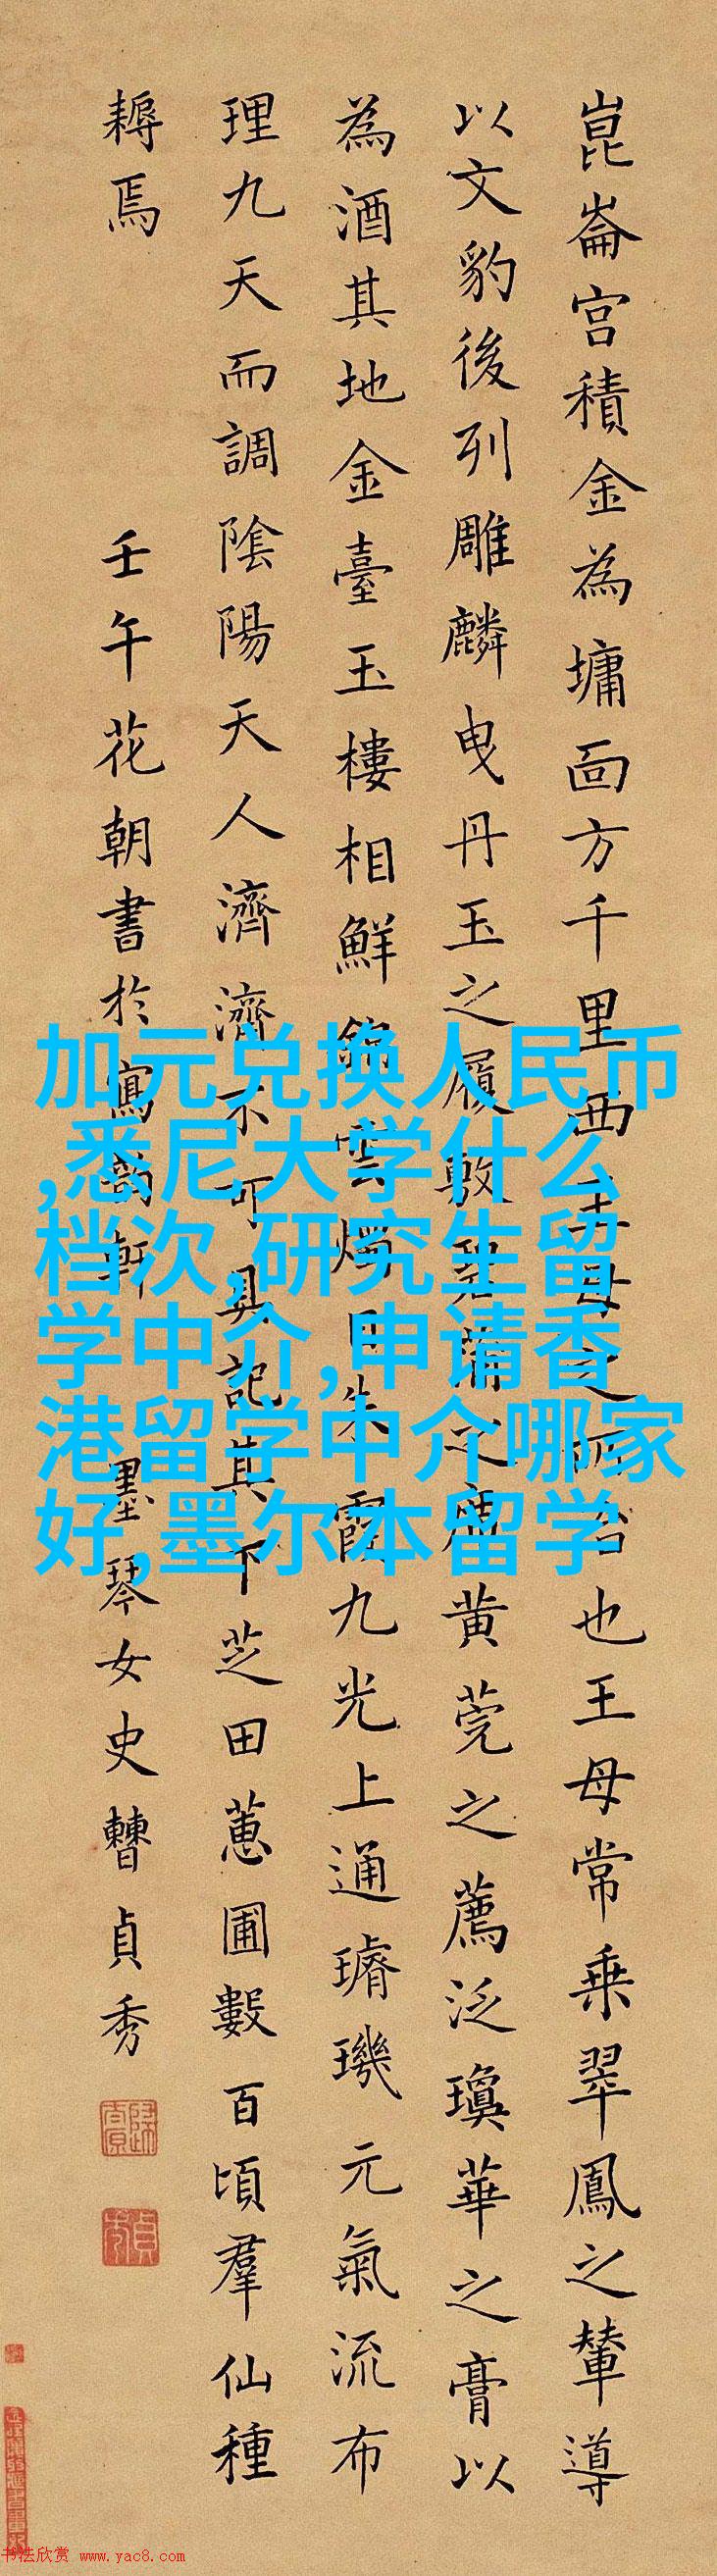 崑崙宮積金為墉面方千里西王母之所治也王母常乘翠鳳之輦導
以文豹後列雕麟曳丹玉之履敷碧蒲之席黄莞之薦泛瓊華之膏以
為酒其地金臺玉樓相鮮錦雲燭日朱霞九光上通璿璣元氣流布
理九天而調陰陽天人濟濟不可具記其下芝田蕙圃數百頃羣仙種
耨焉
壬午花朝書於寫韻軒 墨琴女史曹貞秀
加元兑换人民币
,悉尼大学什么
档次,研究生留
学中介,申请香
港留学中介哪家
好,墨尔本留学
书法欣赏 www.yac8.com